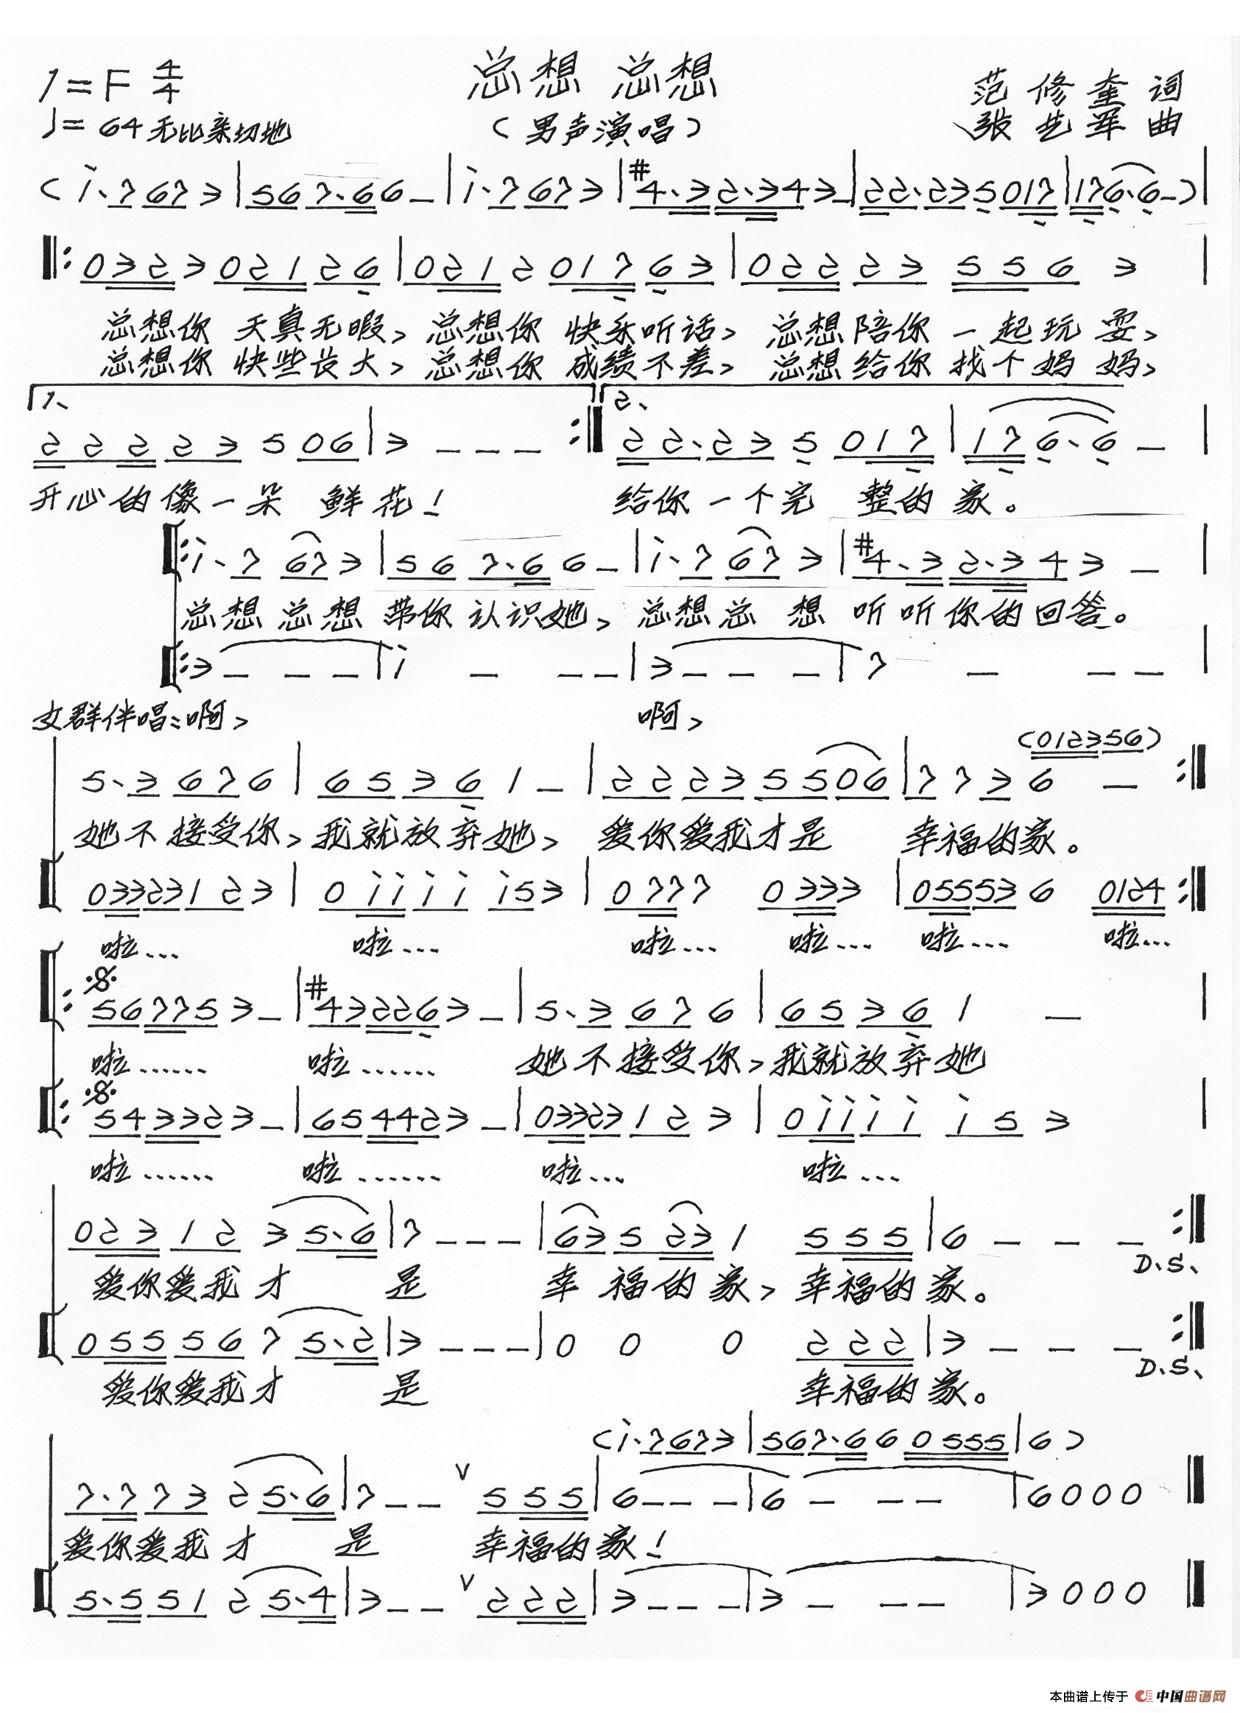 总想 总想
1=F 4/4
范修奎 词
♩=64 无比亲切地
(男声演唱)
张艺军 曲
(i·7 67 3 | 567·66 - | i·7 67 3 | #4·32·343 - | 22·235017 | 176·6-)
‖: 032302126 | 021201763 | 02223 556 3 |
总想你 天真无暇, 总想你 快乐听话, 总想陪你 一起玩 耍,
总想你 快些长大, 总想你 成绩不差, 总想给你 找个妈 妈,
1、 2、
22223 506 | 3 - - - :‖ 22·23 5 017 | 176·6 - |
开心的像一朵 鲜花! 给你一个完 整的家。
‖: i·7 67 3 | 56 7·6 6 - | i·7 67 3 | #4·3 2·3 4 3 - |
总想 总想 带你 认识她, 总想总 想 听听你的回答。
‖: 3 - - - | i - - - | 3 - - - | 7 - - - |
女群伴唱:啊, 啊,
(012356)
5·3 676 | 6536 1 - | 2223 5506 | 773 6 - :‖
她不接受你, 我就放弃她, 爱你爱我才是 幸福的家。
033231 23 | 0iiii i53 | 0777 0333 | 05553 6 0124 :‖
啦… 啦… 啦… 啦… 啦… 啦…
567753 - | #432263 - | 5·3 676 | 6536 1 - |
啦…… 啦…… 她不接受你, 我就放弃她
543323 - | 654423 - | 03323123 | 0iiii i5 3 |
啦…… 啦…… 啦… 啦…
023 12 3 5·6 | 7 - - - | 63 5 23 1 555 | 6 - - - :‖
D.S.
爱你爱我才 是 幸福的家, 幸福的家。
055 56 7 5·2 | 3 - - - | 0 0 0 222 | 3 - - - :‖
D.S.
爱你爱我才 是 幸福的家。
(i·7673 | 567·66 0555 | 6)
7·773 25·6 | 7 - - ∨ 555 | 6 - - - | 6 - - - | 6000 ‖
爱你爱我才 是 幸福的家!
5·551 25·4 | 3 - - ∨ 222 | 3 - - - | 3 - - - | 3000 ‖
本曲谱上传于 中国曲谱网